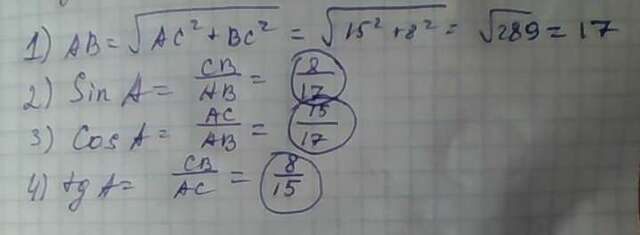 1) AB = √(AC² + BC²) = √(15² + 8²) = √289 = 17
2) Sin A = CB/AB = 8/17
3) Cos A = AC/AB = 15/17
4) tg A = CB/AC = 8/15